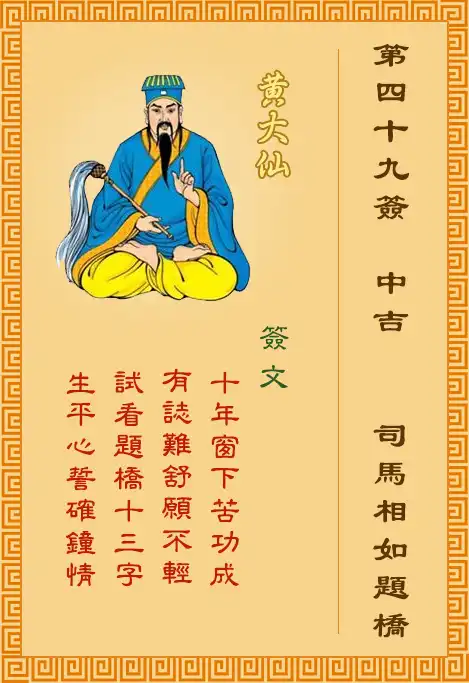 第四十九簽 中吉 司馬相如題橋
黄大仙
簽文
十年窗下苦功成
有誌難舒願不輕
試看題橋十三字
生平心誓確鐘情